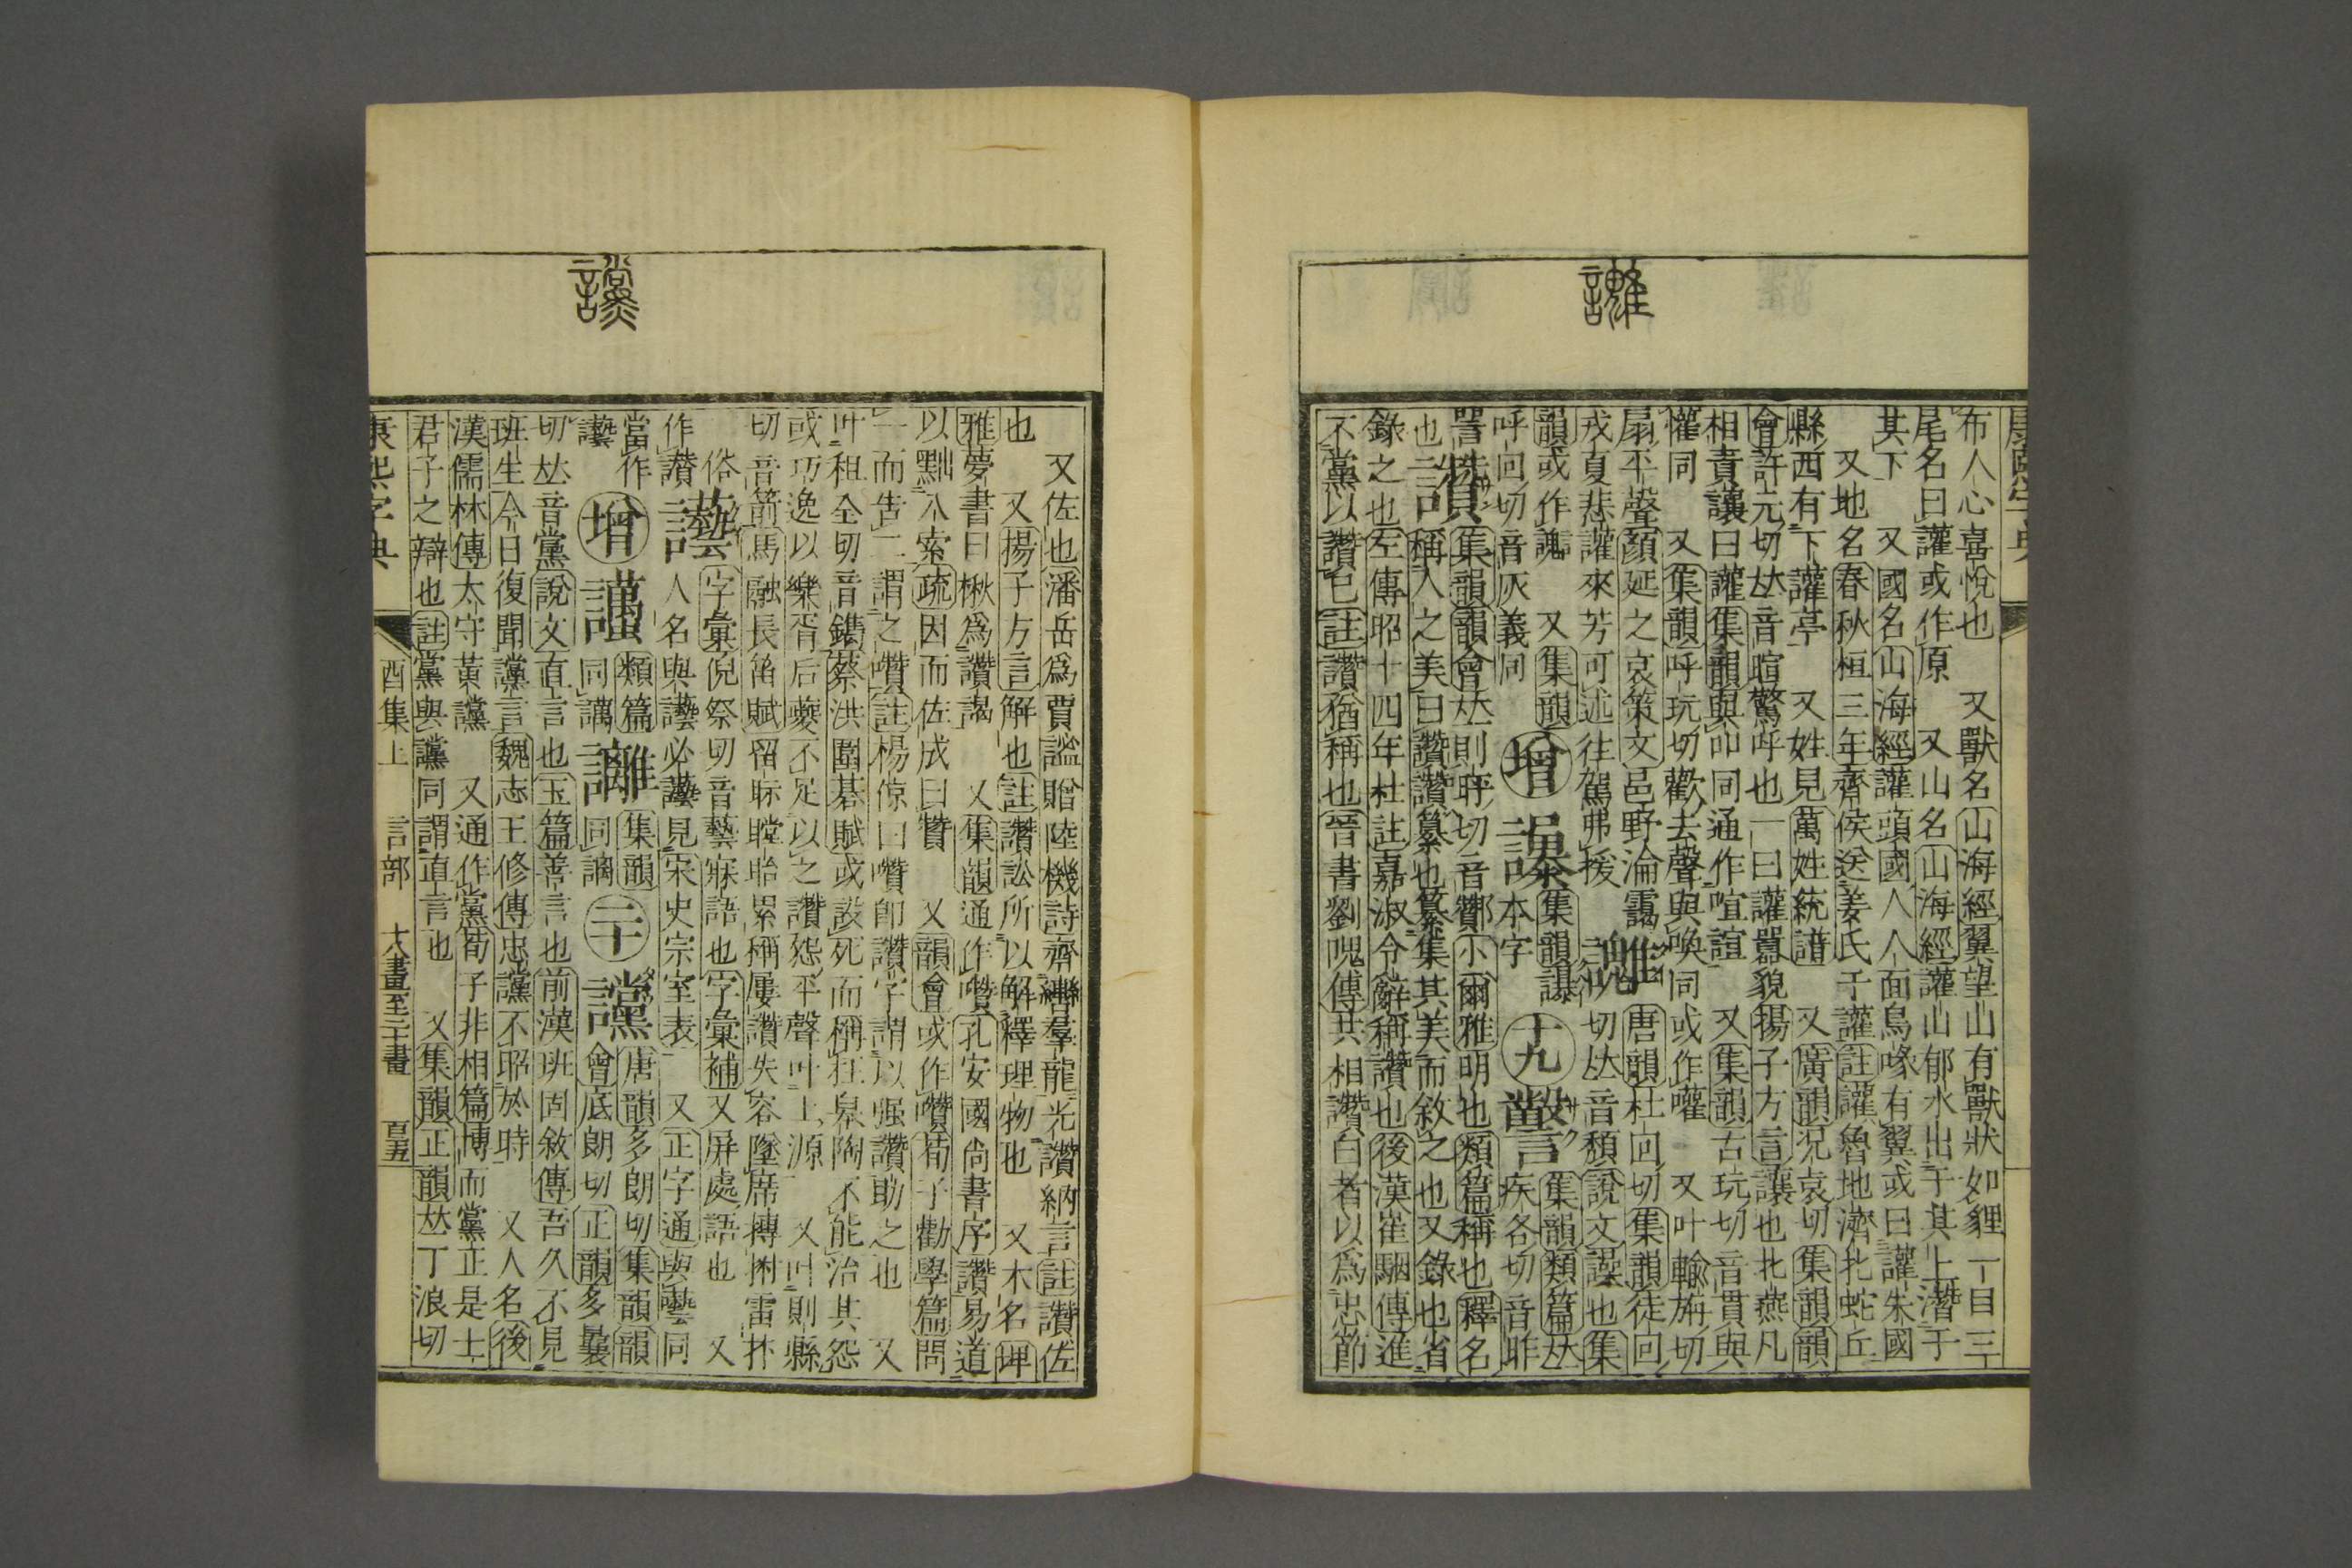 康熙字典
布人心喜悅也　又獸名山海經翼望山有獸狀如貍一目三
尾名曰讙或作原　又山名山海經讙山郁水出于其上潛于
其下　又國名山海經讙頭國人人面鳥喙有翼或曰讙朱國
又地名春秋桓三年齊侯送姜氏于讙註讙魯地濟北蛇丘
縣西有下讙亭　又姓見萬姓統譜　又廣韻況袁切集韻韻
會許元切𠀤音暄驚呼也一曰讙囂貌揚子方言讓也北燕凡
相責讓曰讙集韻與吅同通作喧諠　又集韻古玩切音貫與
懽同　又集韻呼玩切歡去聲與喚同或作嚾　又叶輸旃切
扇平聲顏延之哀策文邑野淪靄
戎夏悲讙來芳可述往駕弗援
唐韻杜回切集韻徒回
切𠀤音頽說文譟也集
韻或作　又集韻
呼回切音灰義同
增
集韻
本字
十九
集韻類篇𠀤
疾各切音昨
詈
讚
集韻韻會𠀤則旰切音贊小爾雅明也類篇稱也釋名
也
稱人之美曰讚讚纂也纂集其美而敘之也又錄也省
錄之也左傳昭十四年杜註嘉淑令辭稱讚也後漢崔駰傳進
不黨以讚已註讚猶稱也晉書劉隗傳共相讚白者以爲忠節
讜
又佐也潘岳爲賈謐贈陸機詩齊轡羣龍光讚納言註讚佐
也　又揚子方言解也註讚訟所以解釋理物也　又木名埤
雅夢書曰楸爲讚謁　又集韻通作囋孔安國尙書序讚易道
以黜八索疏因而佐成曰贊　又韻會或作囋荀子勸學篇問
一而告二謂之囋註楊倞曰囋卽讚字謂以强讚助之也　又
叶祖全切音鐫蔡洪圍碁賦或設死而稱狂臯陶不能治其怨
或巧逸以樂胥后夔不足以之讚怨平聲叶上源　又叶則縣
切音箭馬融長笛賦留眎瞠眙累稱屢讚失容墜席搏拊雷抃
俗
作讚
字彙倪祭切音藝寐語也字彙補又屛處語也　又
人名與藝必讛見宋史宗室表　又正字通與讛同
當作
讛
增
類篇
同講
集韻
同謧
二十
讜
唐韻多朗切集韻韻
會底朗切正韻多曩
切𠀤音黨說文直言也玉篇善言也前漢班固敘傳吾久不見
班生今日復聞讜言魏志王修傳忠讜不昭於時　又人名後
漢儒林傳太守黃讜　又通作黨荀子非相篇博而黨正是士
君子之辯也註黨與讜同謂直言也　又集韻正韻𠀤丁浪切
康熙字典　酉集上　言部　十八畫至二十畫